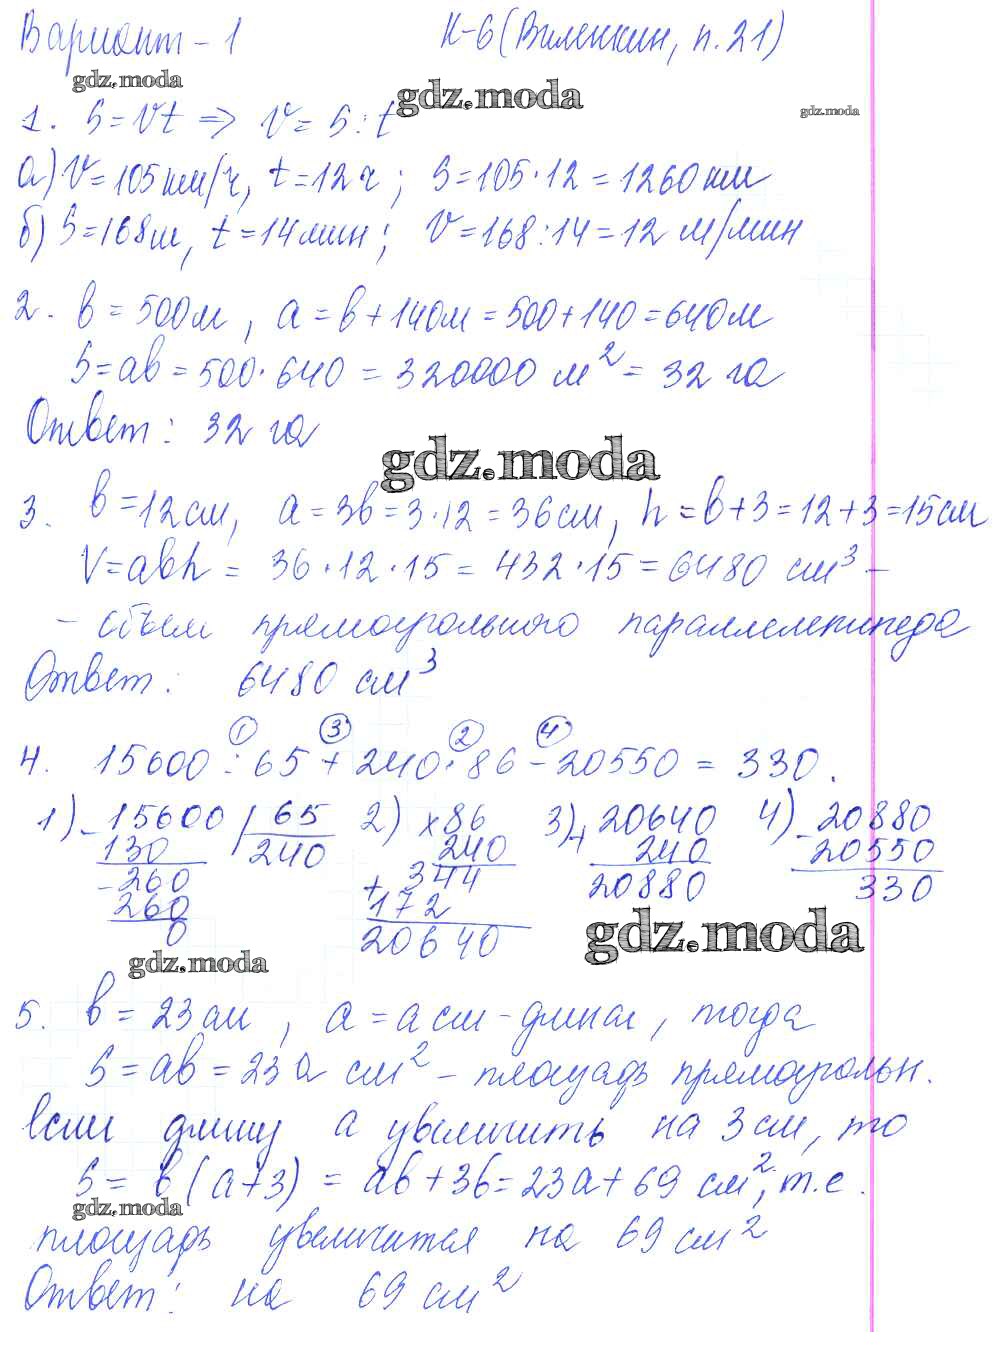 Вариант - 1 К-6 (Виленкин, п. 21)
gdz.moda
gdz.moda
gdz.moda
1. S = Vt ⇒ V = S : t
а) V = 105 км/ч, t = 12 ч ; S = 105 · 12 = 1260 км
б) S = 168 м, t = 14 мин ; V = 168 : 14 = 12 м/мин
2. b = 500 м , a = b + 140 м = 500 + 140 = 640 м
S = ab = 500 · 640 = 320000 м² = 32 га
Ответ : 32 га
gdz.moda
3. b = 12 см, a = 3b = 3 · 12 = 36 см, h = b + 3 = 12 + 3 = 15 см
V = abh = 36 · 12 · 15 = 432 · 15 = 6480 см³ –
– объем прямоугольного параллелепипеда
Ответ : 6480 см³
1 3 2 4
4. 15600 : 65 + 240 · 86 – 20550 = 330.
1) – 15600 | 65 2) × 86 3) + 20640 4) – 20880
130 240 240 240 20550
– 260 344 20880 330
260 + 172
0 20640
gdz.moda
gdz.moda
5. b = 23 см , a = a см – длина , тогда
S = ab = 23a см² – площадь прямоугольн.
Если длину a увеличить на 3 см, то
S = b (a + 3) = ab + 3b = 23a + 69 см², т.е.
gdz.moda
площадь увеличится на 69 см²
Ответ : на 69 см²